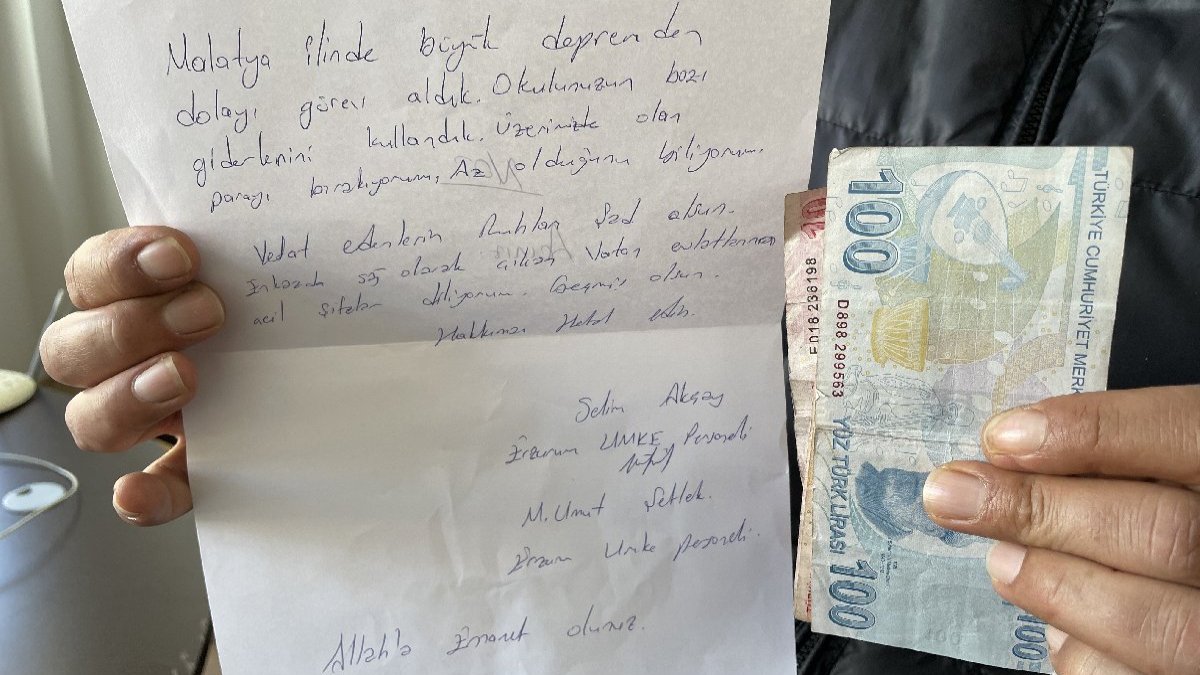 Malatya ilinde büyük depremden
dolayı görev aldık. Okulunuzun bazı
giderlerini kullandık. Üzerimizde olan
parayı bırakıyorum, Az olduğunu biliyorum.
Vefat edenlerin Ruhları Şad olsun.
Enkazda sağ olarak çıkan Vatan evlatlarına
acil şifalar diliyorum. Geçmiş olsun.
Hakkınızı Helal edin.
Selim Akçay
Erzurum UMKE Personeli
M. Umut
Erzurum Umke personeli.
Allah'a Emanet olunuz.
10
F018 236198
100
D898 299563
YÜZ TÜRK LİRASI
100
TÜRKİYE CUMHURİYET MERK
100